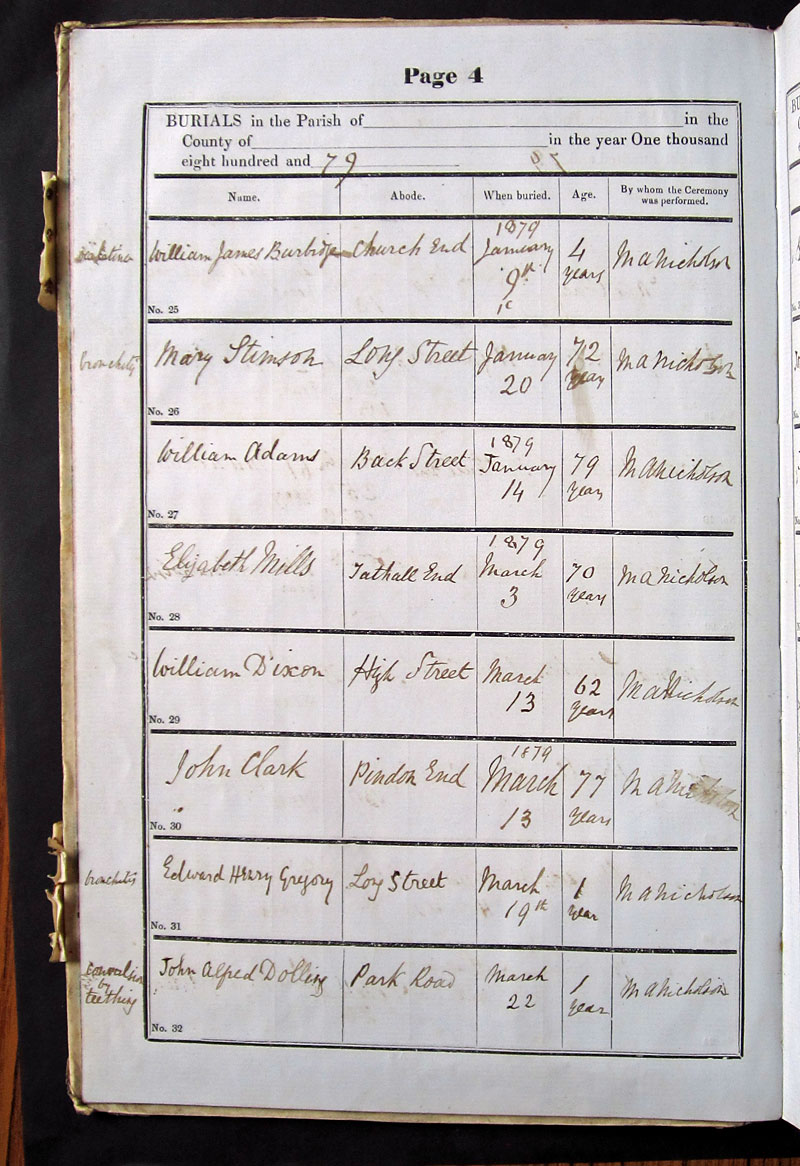 Page 4
BURIALS in the Parish of in the
County of in the year One thousand
eight hundred and 79
Name. Abode. When buried. Age. By whom the Ceremony was performed.
scarlatina William James Burbidge Church End 1879 January 9th 4 years M A Nicholson
No. 25
bronchitis Mary Stimson Long Street January 20 72 years M A Nicholson
No. 26
William Adams Back Street 1879 January 14 79 years M A Nicholson
No. 27
Elizabeth Mills Tathall End 1879 March 3 70 years M A Nicholson
No. 28
William Dixon High Street March 13 62 years M A Nicholson
No. 29
John Clark Pindon End 1879 March 13 77 years M A Nicholson
No. 30
bronchitis Edward Henry Gregory Long Street March 19th 1 year M A Nicholson
No. 31
convulsion by teething John Alfred Dolling Park Road March 22 1 year M A Nicholson
No. 32